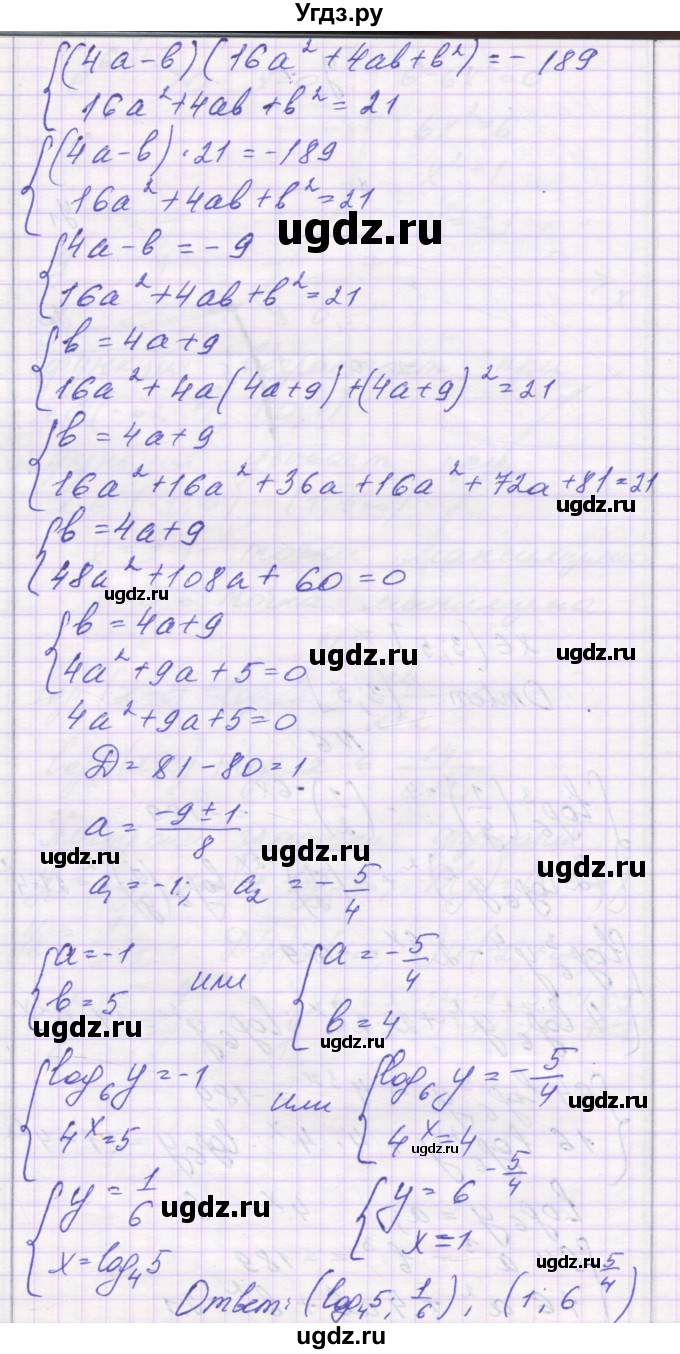 Угдз.ру
(4a-b)(16a²+4ab+b²)=-189
16a²+4ab+b²=21
(4a-b)·21=-189
16a²+4ab+b²=21
ugdz.ru
4a-b=-9
16a²+4ab+b²=21
b=4a+9
16a²+4a(4a+9)+(4a+9)²=21
b=4a+9
16a²+16a²+36a+16a²+72a+81=21
ugdz.ru
b=4a+9
48a²+108a+60=0
ugdz.ru
b=4a+9
ugdz.ru ugdz.ru
4a²+9a+5=0
4a²+9a+5=0
D=81-80=1
a=(-9±1)/8
ugdz.ru ugdz.ru ugdz.ru
a₁=-1; a₂=-5/4
a=-1 или a=-5/4
b=5 b=4
ugdz.ru ugdz.ru
log₆y=-1 или log₆y=-5/4
ugdz.ru
4ˣ=5 4ˣ=4
ugdz.ru
y=1/6 y=6^(-5/4)
ugdz.ru
x=log₄5 x=1
ugdz.ru
Ответ: (log₄5; 1/6), (1; 6^(5/4))
ugdz.ru